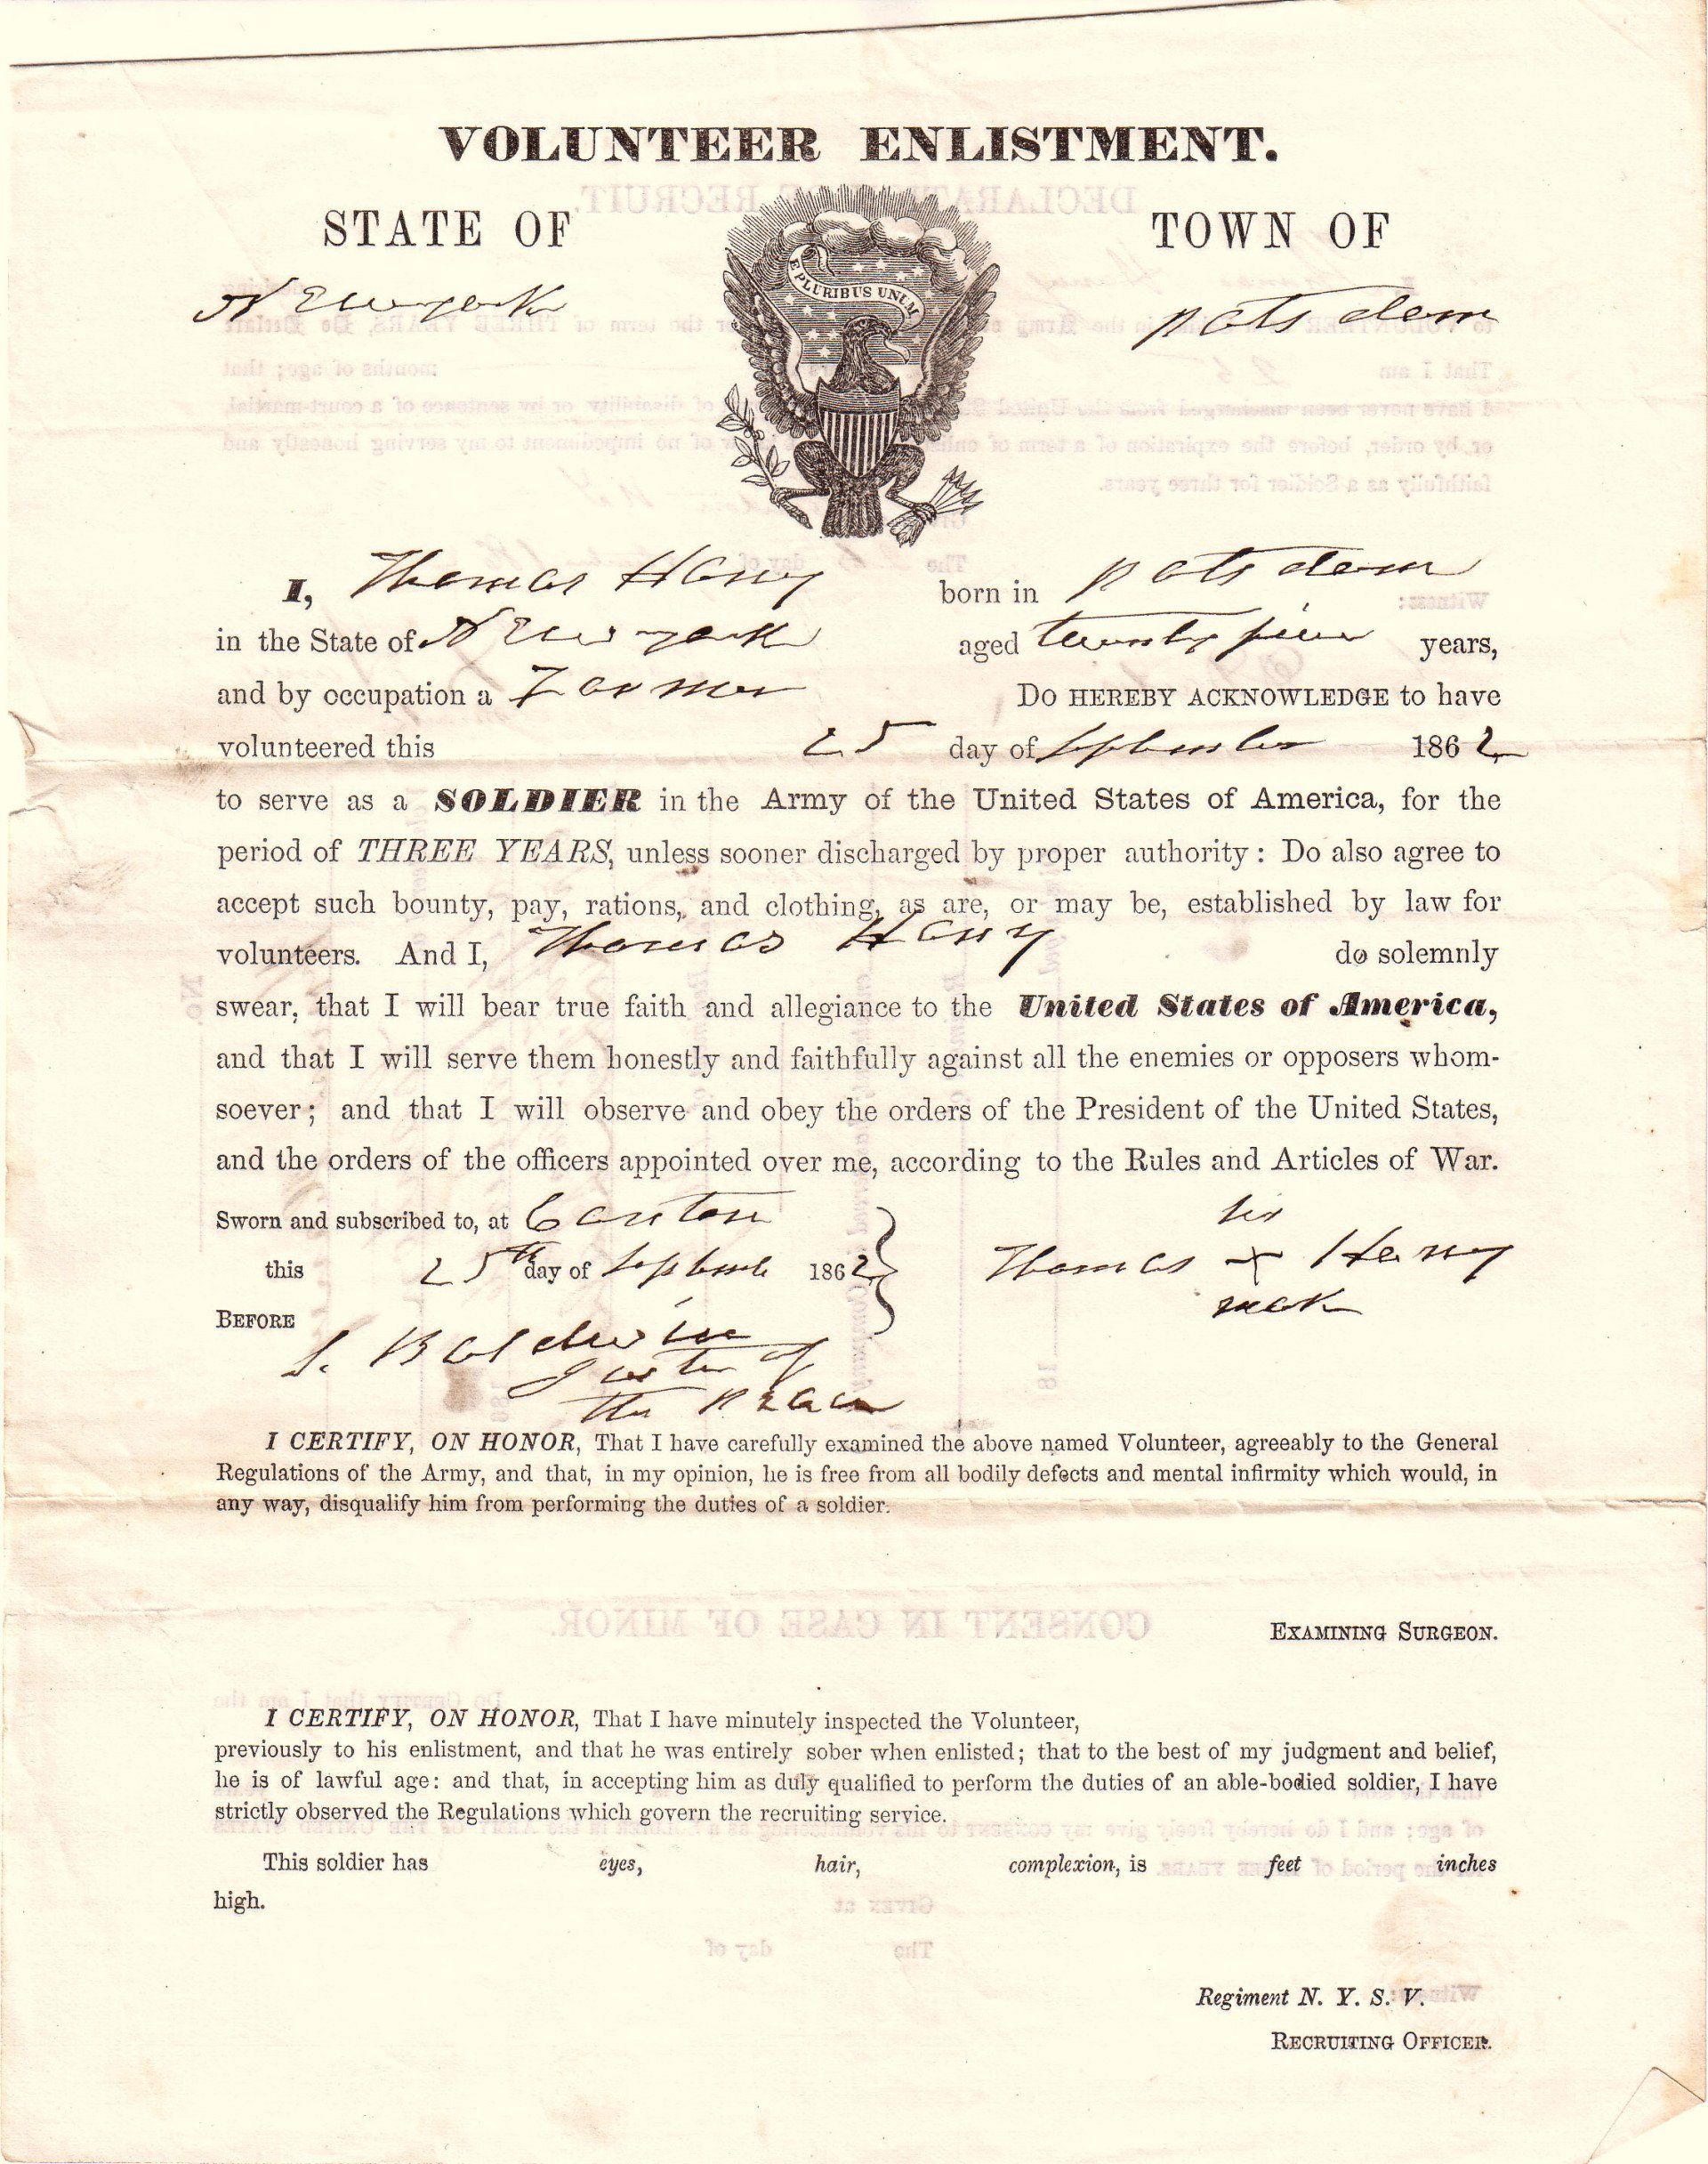 VOLUNTEER ENLISTMENT.
STATE OF
TOWN OF
E PLURIBUS UNUM
New york
potsdam
I, Thomas Hany born in potsdam
in the State of New york aged twenty five years,
and by occupation a Farmer Do HEREBY ACKNOWLEDGE to have
volunteered this 25 day of September 1862
to serve as a SOLDIER in the Army of the United States of America, for the
period of THREE YEARS, unless sooner discharged by proper authority: Do also agree to
accept such bounty, pay, rations, and clothing, as are, or may be, established by law for
volunteers. And I, Thomas Hany do solemnly
swear, that I will bear true faith and allegiance to the United States of America,
and that I will serve them honestly and faithfully against all the enemies or opposers whom-
soever; and that I will observe and obey the orders of the President of the United States,
and the orders of the officers appointed over me, according to the Rules and Articles of War.
Sworn and subscribed to, at Canton
this 25th day of September 1862
his
Thomas x Hany
mark
BEFORE
S. Baldwin
Justice of
the peace
I CERTIFY, ON HONOR, That I have carefully examined the above named Volunteer, agreeably to the General
Regulations of the Army, and that, in my opinion, he is free from all bodily defects and mental infirmity which would, in
any way, disqualify him from performing the duties of a soldier.
EXAMINING SURGEON.
I CERTIFY, ON HONOR, That I have minutely inspected the Volunteer,
previously to his enlistment, and that he was entirely sober when enlisted; that to the best of my judgment and belief,
he is of lawful age: and that, in accepting him as duly qualified to perform the duties of an able-bodied soldier, I have
strictly observed the Regulations which govern the recruiting service.
This soldier has eyes, hair, complexion, is feet inches
high.
Regiment N. Y. S. V.
RECRUITING OFFICER.